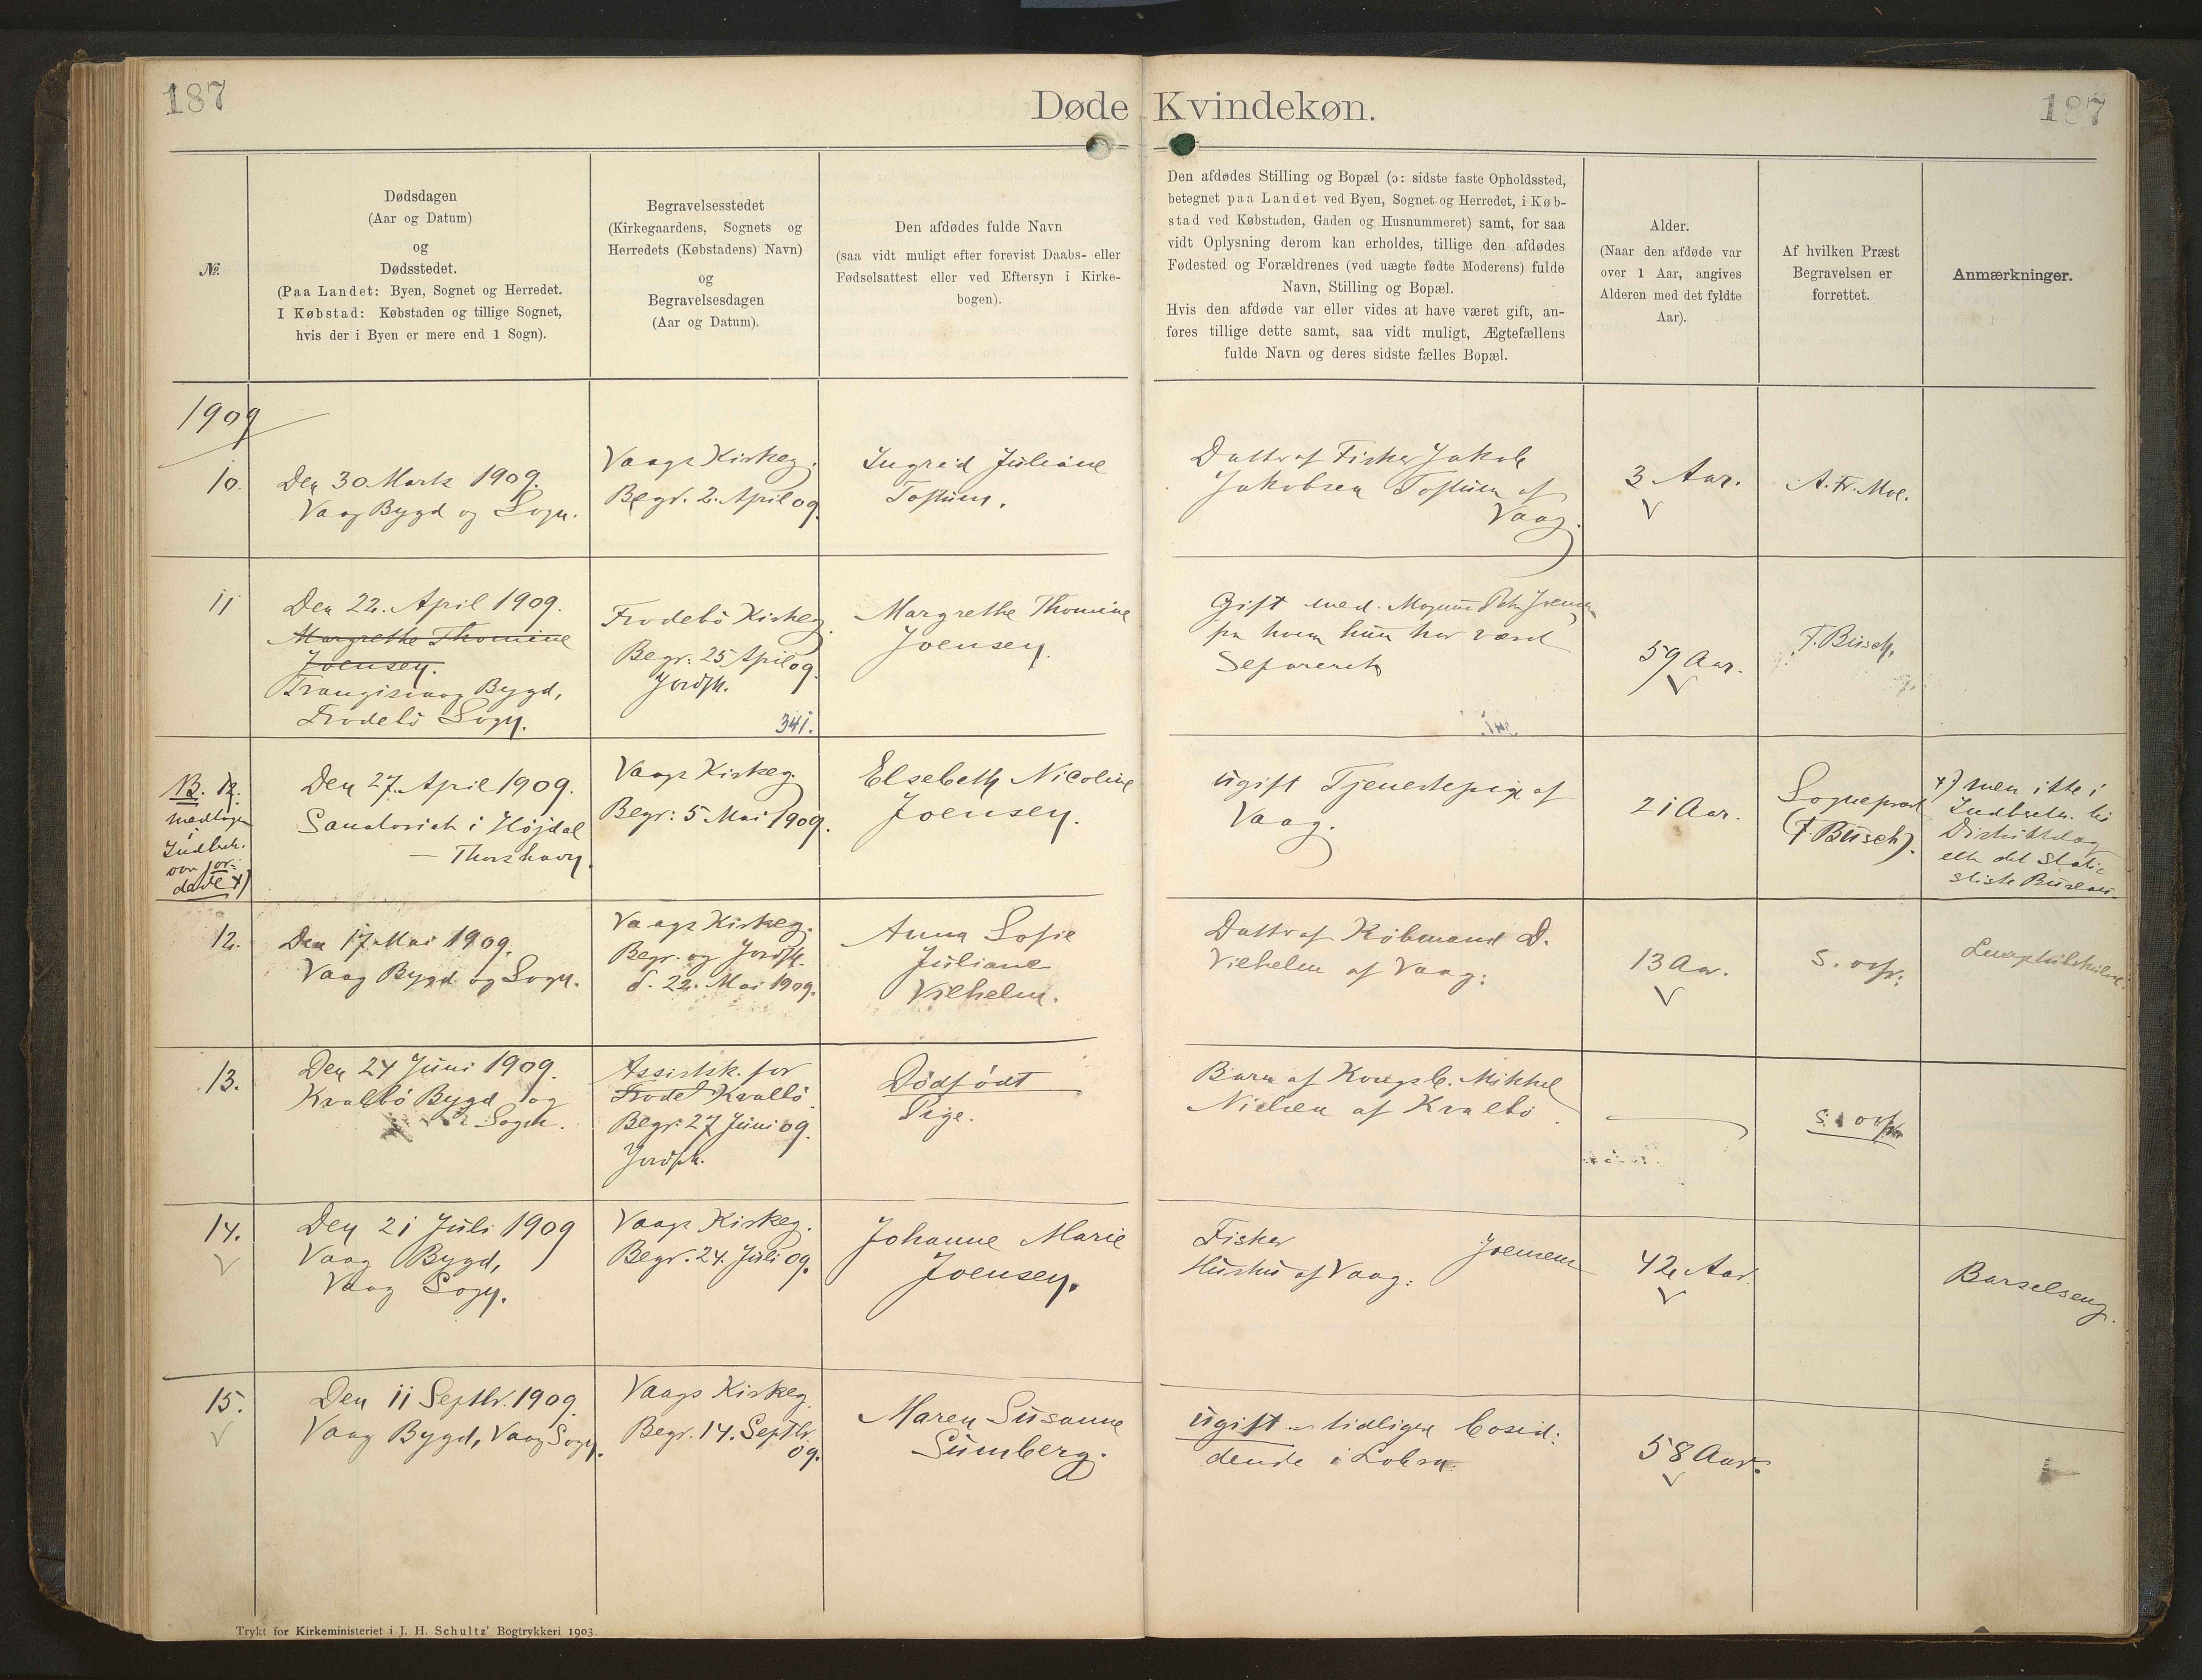 187
Døde Kvindekøn.
187
№
Dødsdagen
(Aar og Datum)
og
Dødsstedet.
(Paa Landet: Byen, Sognet og Herredet.
I Købstad: Købstaden og tillige Sognet,
hvis der i Byen er mere end 1 Sogn).
Begravelsesstedet
(Kirkegaardens, Sognets og
Herredets (Købstadens) Navn)
og
Begravelsesdagen
(Aar og Datum).
Den afdødes fulde Navn
(saa vidt muligt efter forevist Daabs- eller
Fødselsattest eller ved Eftersyn i Kirke-
bogen).
Den afdødes Stilling og Bopæl (ɔ: sidste faste Opholdssted,
betegnet paa Landet ved Byen, Sognet og Herredet, i Køb-
stad ved Købstaden, Gaden og Husnummeret) samt, for saa
vidt Oplysning derom kan erholdes, tillige den afdødes
Fødested og Forældrenes (ved uægte fødte Moderens) fulde
Navn, Stilling og Bopæl.
Hvis den afdøde var eller vides at have været gift, an-
føres tillige dette samt, saa vidt muligt, Ægtefællens
fulde Navn og deres sidste fælles Bopæl.
Alder.
(Naar den afdøde var
over 1 Aar, angives
Alderen med det fyldte
Aar).
Af hvilken Præst
Begravelsen er
forrettet.
Anmærkninger.
1909
10.
Den 30 Marts 1909.
Vaag Bygd og Sogn.
Vaags Kirkeg.
Begr. 2. April 09.
Ingrid Juliane
Toftum.
Datter af Fisker Jakob
Jakobsen Toftum af
Vaag.
3 Aar.
A. Fr. Moe.
11
Den 22. April 1909.
Margrethe Thomine
Joensen.
Trangisvaag Bygd,
Frodebö Sogn.
Frodebö Kirkeg.
Begr: 25 April 09.
Jordfk.
341.
Margrethe Thomine
Joensen.
Gift med. Magnus Petr Joensen
fra hvem hun har været
Separeret
59 Aar.
F. Busch.
NB. 12.
medtagen
i
Indberet.
over for-
døde x)
Den 27. April 1909.
Sanatoriet i Höjdal
— Thorshavn.
Vaags Kirkeg.
Begr: 5 Mai 1909.
Elsebeth Nicoline
Joensen.
ugift Tjenestepige af
Vaag.
21 Aar.
Sognepræst
(F. Busch).
x) men ikke i
Indberetn. til
Distriktslæg
eller det Stati-
stiske Bureau.
12.
Den 17. Mai 1909.
Vaag Bygd og Sogn.
Vaags Kirkeg.
Begr. og Jordfk.
d. 22. Mai 1909.
Anna Sofie
Juliane
Vilhelm.
Datter af Købmand D.
Vilhelm af Vaag.
13 Aar.
S. ovfr.
13.
Den 24 Juni 1909.
Kvalbö Bygd og
Sogn.
Assistsk. for
Frode Kvalbö.
Begr: 27 Juni 09.
Jordfk.
Dödfödt
Pige.
Barn af Kongsb. Mikkel
Nielsen af Kvalbö.
S. ovfr.
14.
Den 21 Juli 1909
Vaag Bygd,
Vaag Sogn.
Vaags Kirkeg.
Begr. 24. Juli 09.
Johanne Marie
Joensen.
Fisker Joensens
Hustru af Vaag.
42 Aar.
Barselseng.
15.
Den 11 Septbr. 1909.
Vaag Bygd, Vaag Sogn.
Vaags Kirkeg.
Begr. 14. Septbr.
09.
Maren Susanne
Sumberg.
ugift tidligere bosid-
dende i Lobra.
58 Aar.
Trykt for Kirkeministeriet i J. H. Schultz' Bogtrykkeri 1903.